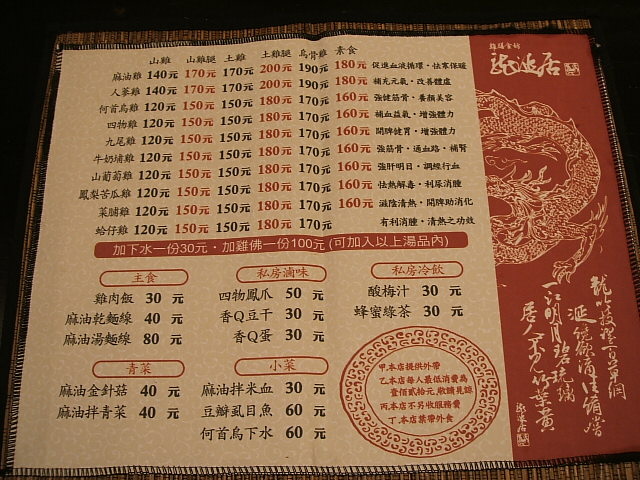 山雞 山雞腿 土雞 土雞腿 烏骨雞 素食
麻油雞 140元 170元 170元 200元 190元 180元 促進血液循環・怯寒保暖
人蔘雞 140元 170元 170元 200元 190元 180元 補充元氣・改善體虛
何首烏雞 120元 150元 150元 180元 170元 160元 強健筋骨・養顏美容
四物雞 120元 150元 150元 180元 170元 160元 補血益氣・增強體力
九尾雞 120元 150元 150元 180元 170元 160元 開脾健胃・增強體力
牛奶埔雞 120元 150元 150元 180元 170元 160元 強筋骨・通血路・補腎
山葡萄雞 120元 150元 150元 180元 170元 160元 強肝明目・調經行血
鳳梨苦瓜雞 120元 150元 150元 180元 170元 160元 怯熱解毒・利尿消腫
菜脯雞 120元 150元 150元 180元 170元 160元 滋陰清熱・開脾助消化
蛤仔雞 120元 150元 150元 180元 170元 有利消腫・清熱之功效
加下水一份30元・加雞佛一份100元 (可加入以上湯品內)
主食
雞肉飯 30 元
麻油乾麵線 40 元
麻油湯麵線 80 元
青菜
麻油金針菇 40 元
麻油拌青菜 40 元
私房滷味
四物鳳爪 50 元
香Q豆干 30 元
香Q蛋 30 元
小菜
麻油拌米血 30 元
豆瓣虱目魚 60 元
何首烏下水 60 元
私房冷飲
酸梅汁 30 元
蜂蜜綠茶 30 元
甲.本店提供外帶
乙.本店每人最低消費為
壹佰貳拾元,敬請見諒
丙.本店不另收服務費
丁.本店禁帶外食
龍涎居